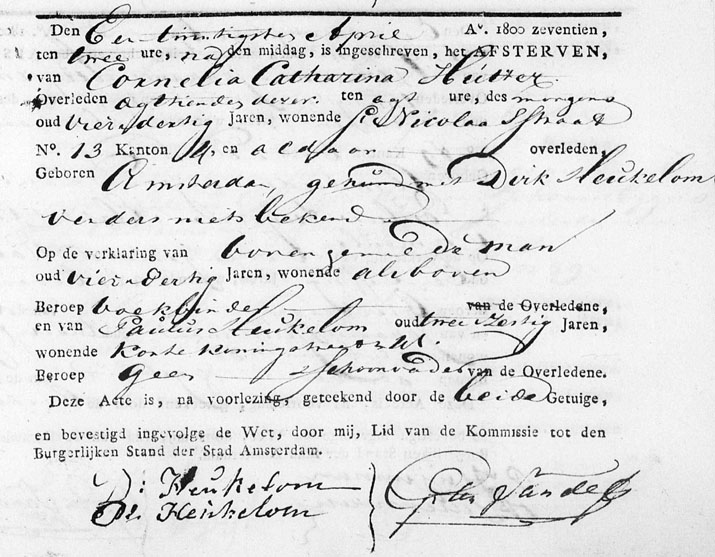 Den Een twintigsten April Ao. 1800 zeventien,
ten twee ure, na den middag, is ingeschreven, het AFSTERVEN,
van Cornelia Catharina Hutter.
Overleden agttienden dezer. ten agt ure, des morgens
oud vierendertig Jaren, wonende St Nicolaas Straat
No. 13 Kanton 4, en aldaar overleden,
Geboren Amsterdam, gehuwd met Dirk Heukelom
verders niets bekend
Op de verklaring van bovengemelde man
oud vierendertig Jaren, wonende als boven
Beroep boekbinder van de Overledene,
en van Paulus Heukelom oud twee zestig Jaren,
wonende korte koningstraat
Beroep Geen Schoonvader van de Overledene.
Deze Acte is, na voorlezing, geteekend door de beide Getuige,
en bevestigd ingevolge de Wet, door mij, Lid van de Kommissie tot den
Burgerlijken Stand der Stad Amsterdam.
D: Heukelom
P: Heukelom